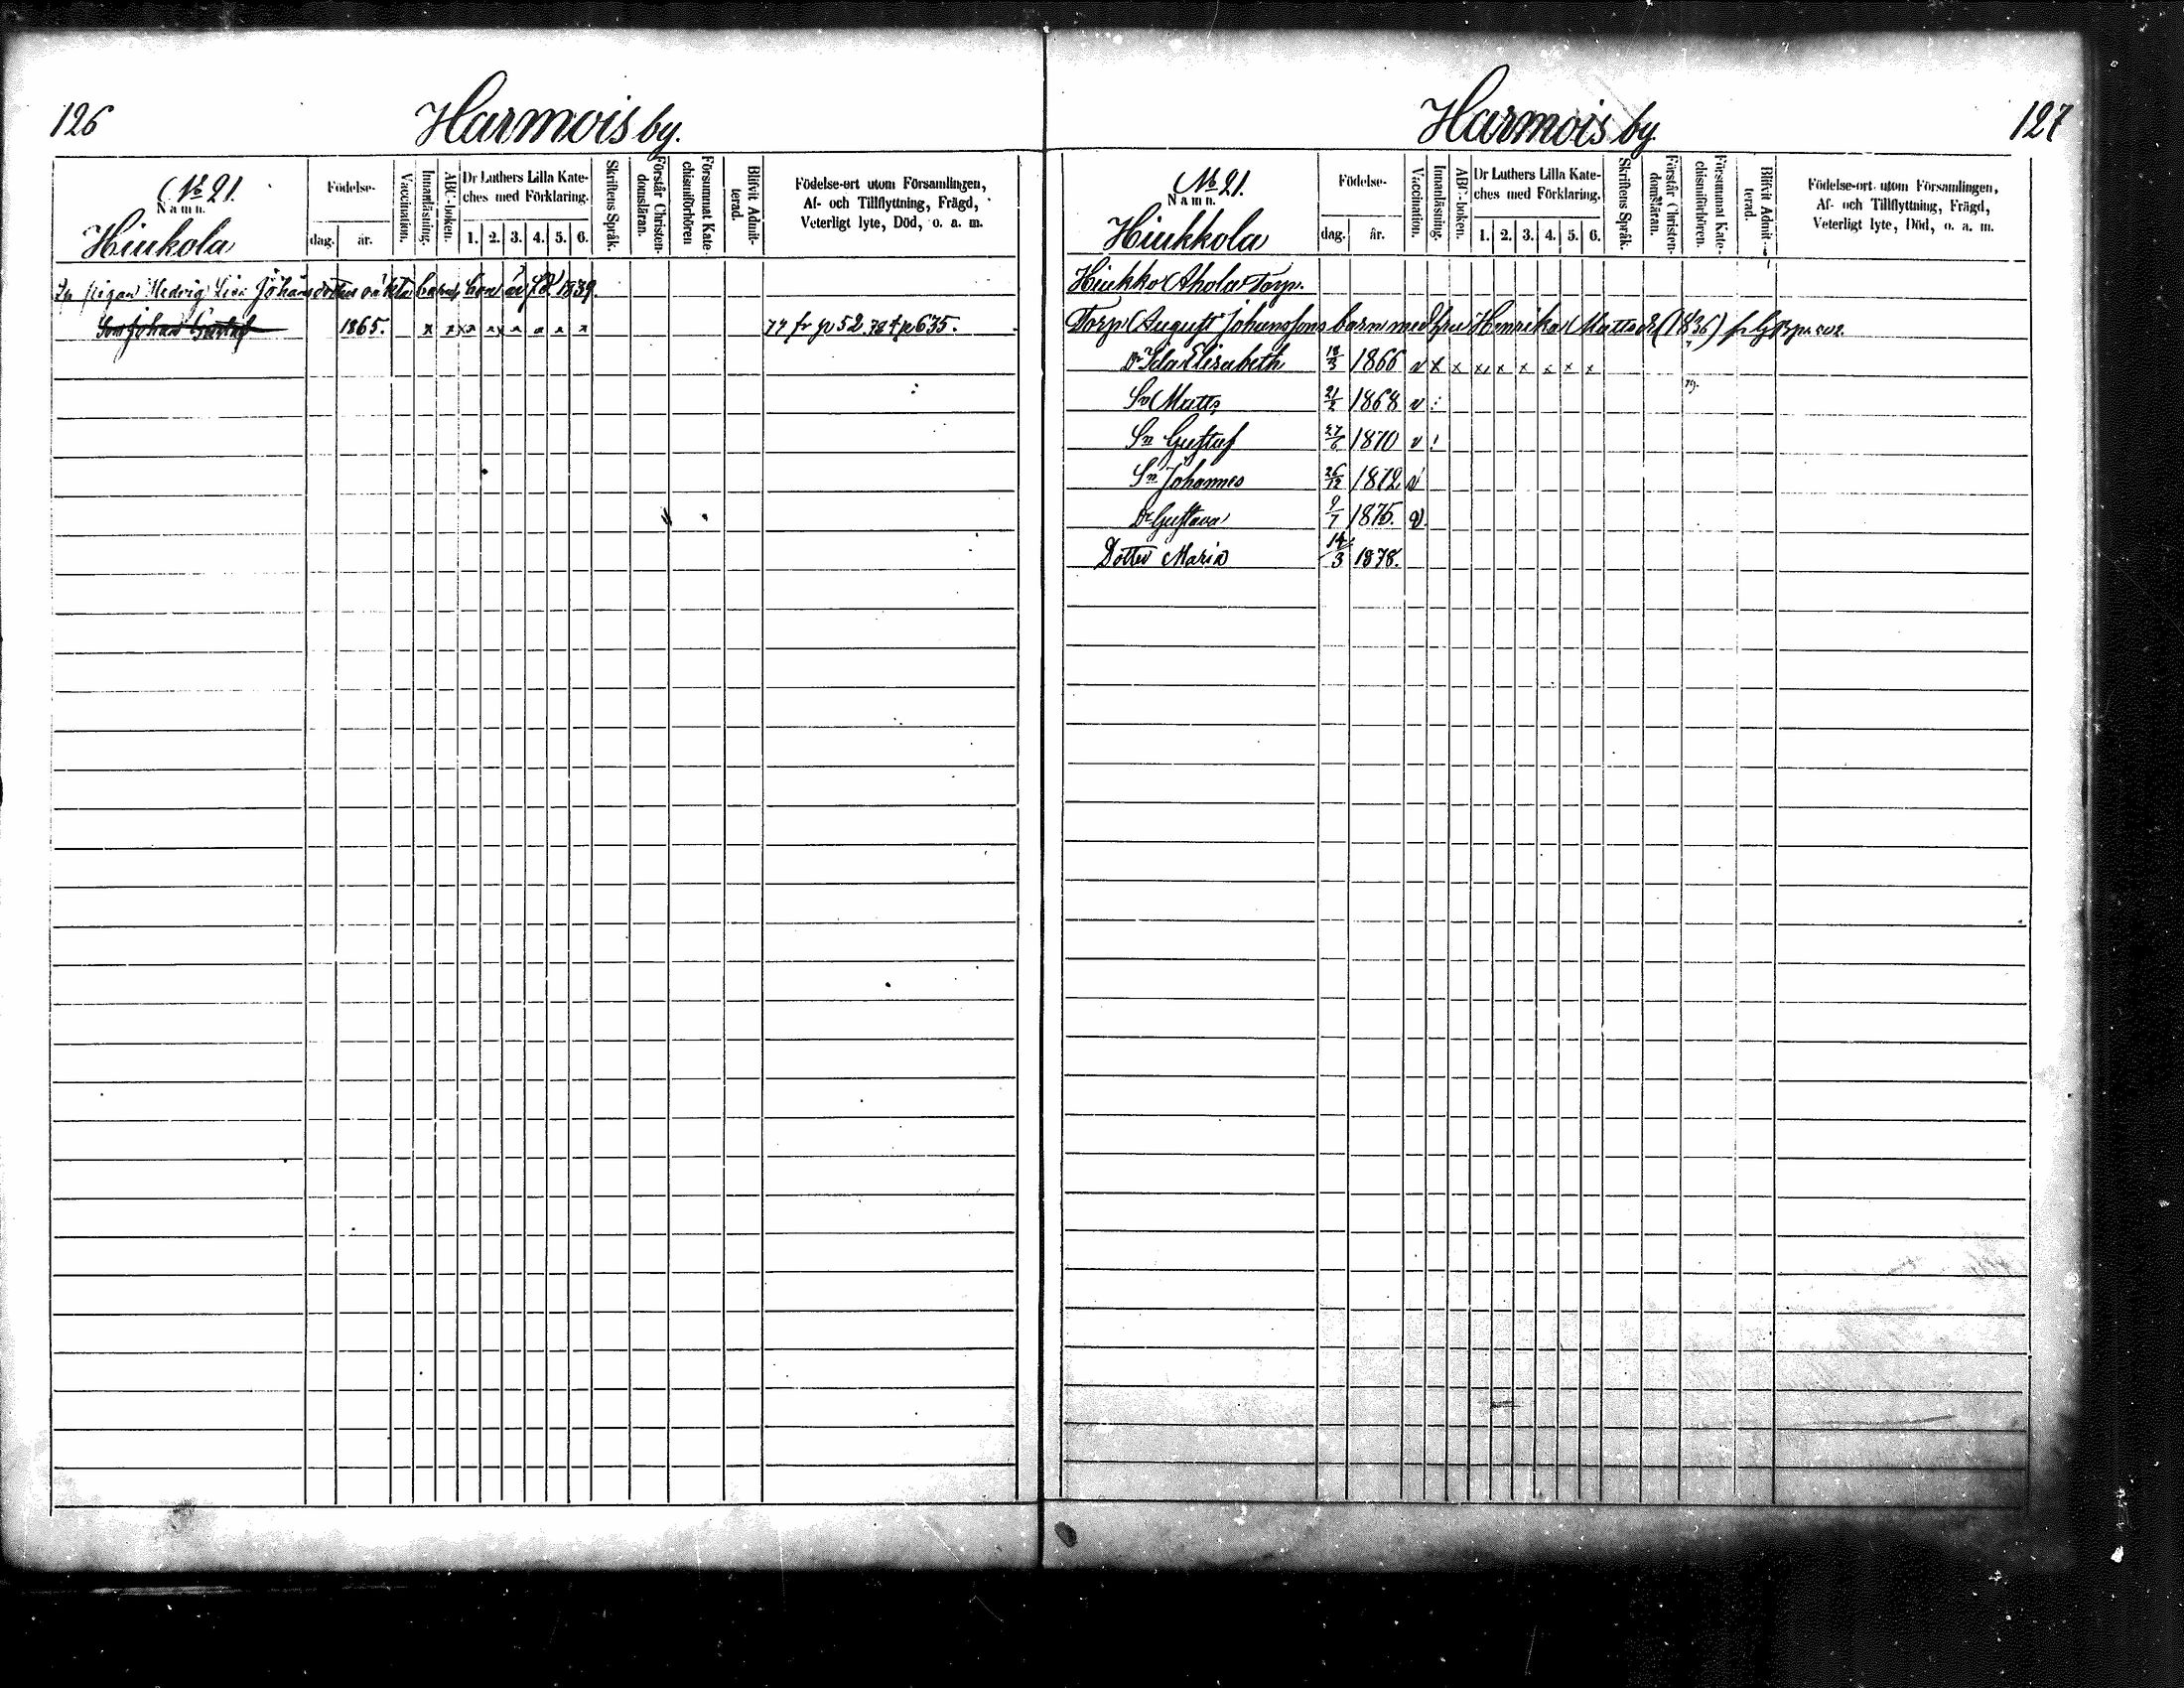 126
Harmois by.
No 21.
Namn.
Hiukola
Födelse-
dag. år.
Vaccination.
Innanläsning.
ABC-boken.
Dr Luthers Lilla Kate-
ches med Förklaring.
1. 2. 3. 4. 5. 6.
Skriftens Språk.
Förstår Christen-
domsläran.
Försummat Kate-
chismiförhören
Blifvit Admit-
terad.
Födelse-ort utom Församlingen,
Af- och Tillflyttning, Frägd,
Veterligt lyte, Död, o. a. m.
pigan Hedvig Lisa Johansdotters oäkta barn, hon är född 1839.
Son Johan Gustaf 1865. x x x x x x x x 77 fr p 52. 78 t p 635.
Harmois by.
127
No 21.
Namn.
Hiukkola
Födelse-
dag. år.
Vaccination.
Innanläsning.
ABC-boken.
Dr Luthers Lilla Kate-
ches med Förklaring.
1. 2. 3. 4. 5. 6.
Skriftens Språk.
Förstår Christen-
domsläran.
Försummat Kate-
chismiförhören.
Blifvit Admit-
terad.
Födelse-ort utom Församlingen,
Af- och Tillflyttning, Frägd,
Veterligt lyte, Död, o. a. m.
Hiukko Ahola Torp.
Torp August Johanssons barn med Hru Henrika Mattsdr (1836)
Dr Ida Elisabeth 18/3 1866 v x x x x x x x x
Sn Matts 21/2 1868 v
Sn Gustaf 27/6 1870 v
Sn Johannes 26/12 1872 v
Dr Gustava 9/7 1875. v
Dotter Maria 14/3 1878.